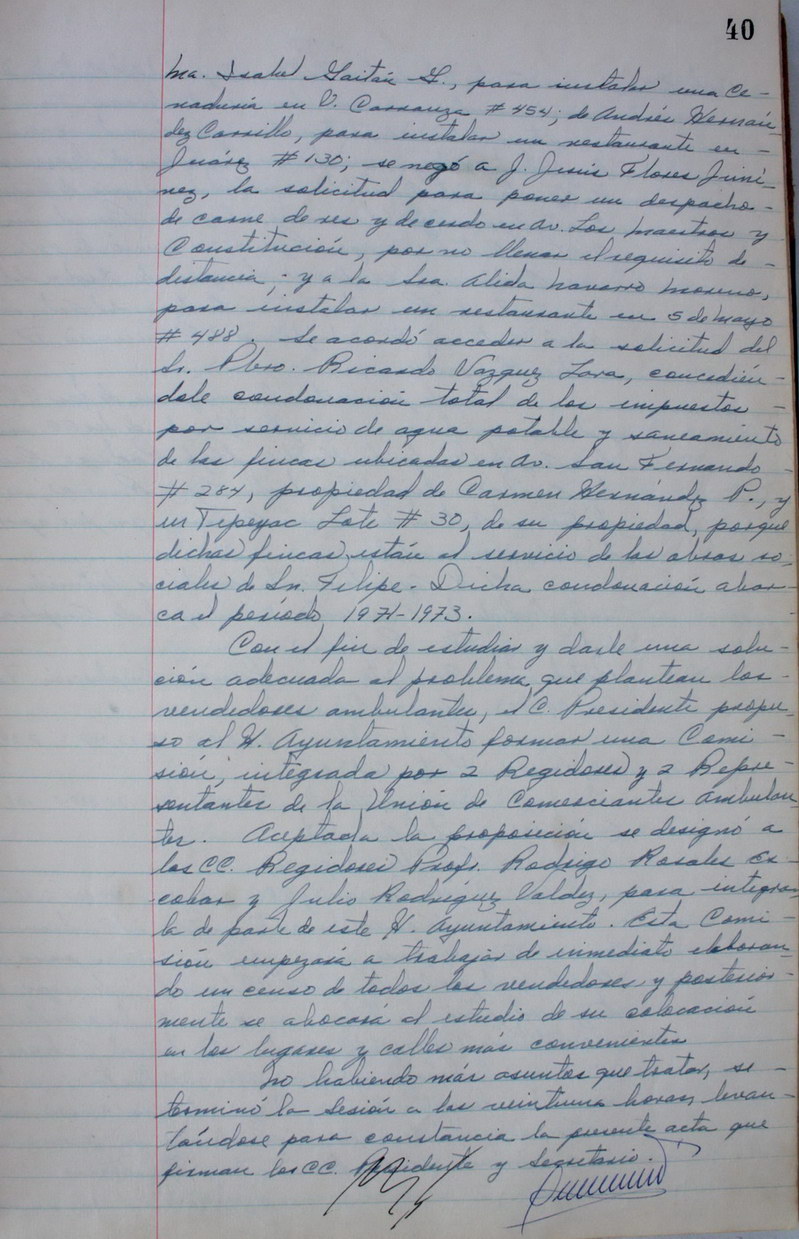 40
Ma. Isabel Gaitán G., para instalar una Ce-
naduría en V. Carranza # 454; de Andrés Hernán-
dez Carrillo, para instalar un restaurante en -
Juárez # 130; se negó a J. Jesús Flores Jimé-
nez, la solicitud para poner un despacho -
de carne de res y de cerdo en Av. Los Maestros y
Constitución, por no llenar el requisito de -
distancia; y a la Sra. Alida Navarro Moreno,
para instalar un restaurante en 5 de Mayo
# 488. Se acordó acceder a la solicitud del
Sr. Pbro. Ricardo Vazquez Lara, concedién-
dole condonación total de los impuestos -
por servicio de agua potable y saneamiento
de las fincas ubicadas en Av. San Fernando -
# 284, propiedad de Carmen Hernández P., y
en Tepeyac Lote # 30, de su propiedad, porque
dichas fincas están al servicio de las obras so-
ciales de Sn. Felipe. Dicha condonación abar-
ca el período 1971-1973.
Con el fin de estudiar y darle una solu-
ción adecuada al problema que plantean los -
vendedores ambulantes, el C. Presidente propu-
so al H. Ayuntamiento formar una Comi-
sión, integrada por 2 Regidores y 2 Repre-
sentantes de la Unión de Comerciantes Ambulan-
tes. Aceptada la proposición se designó a
los CC. Regidores Profr. Rodrigo Rosales Es-
cobar y Julio Rodríguez Valdez, para integrar-
la de parte de este H. Ayuntamiento. Esta Comi-
sión empezará a trabajar de inmediato elaboran-
do un censo de todos los vendedores y posterior-
mente se abocará al estudio de su colocación
en los lugares y calles más convenientes
No habiendo más asuntos que tratar, se -
terminó la Sesión a las veintiuna horas, levan-
tándose para constancia la presente acta que
firman los CC. Presidente y Secretario.